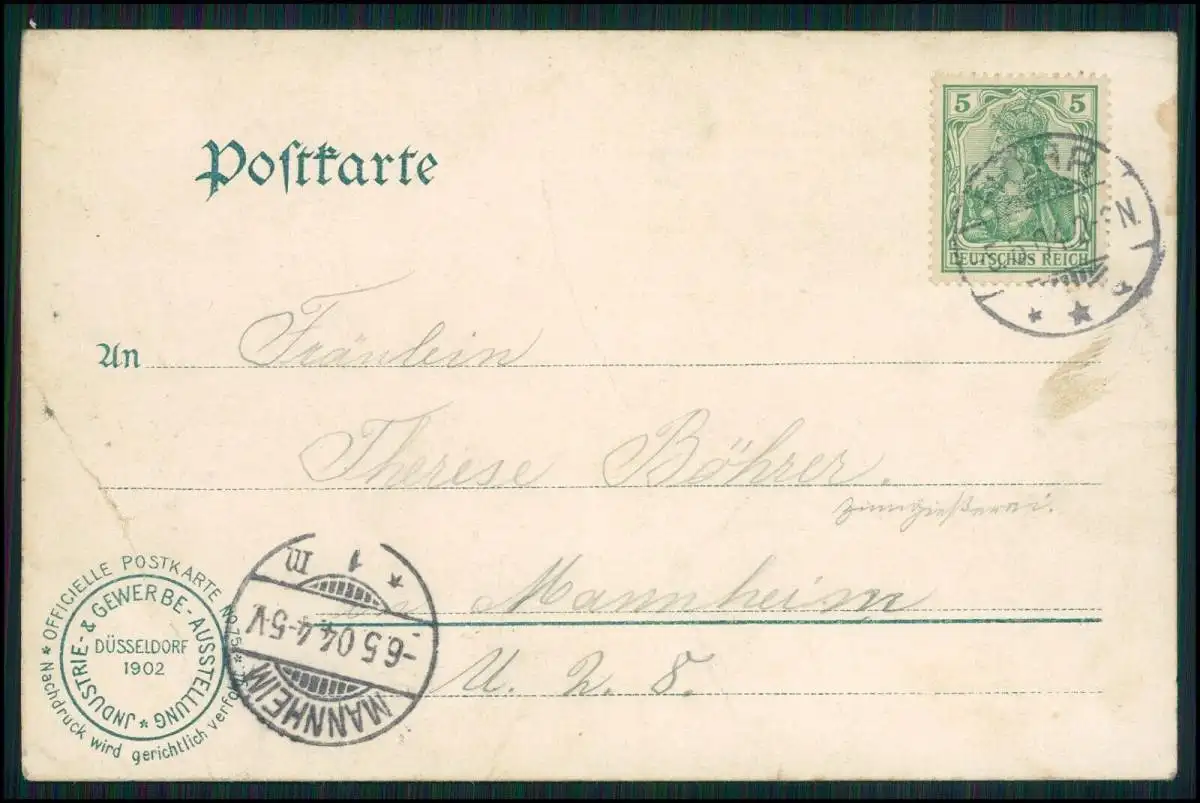 Postkarte
5 5
DEUTSCHES REICH
An Fräulein
Therese Böhrer.
Zinngießerei.
in Mannheim
U. 2. 8.
MANNHEIM
-6.5.04.4-5.V
* 1 m
* OFFICIELLE POSTKARTE No 75 *
Nachdruck wird gerichtlich verfolgt
JNDUSTRIE- & GEWERBE-AUSSTELLUNG *
DÜSSELDORF
1902